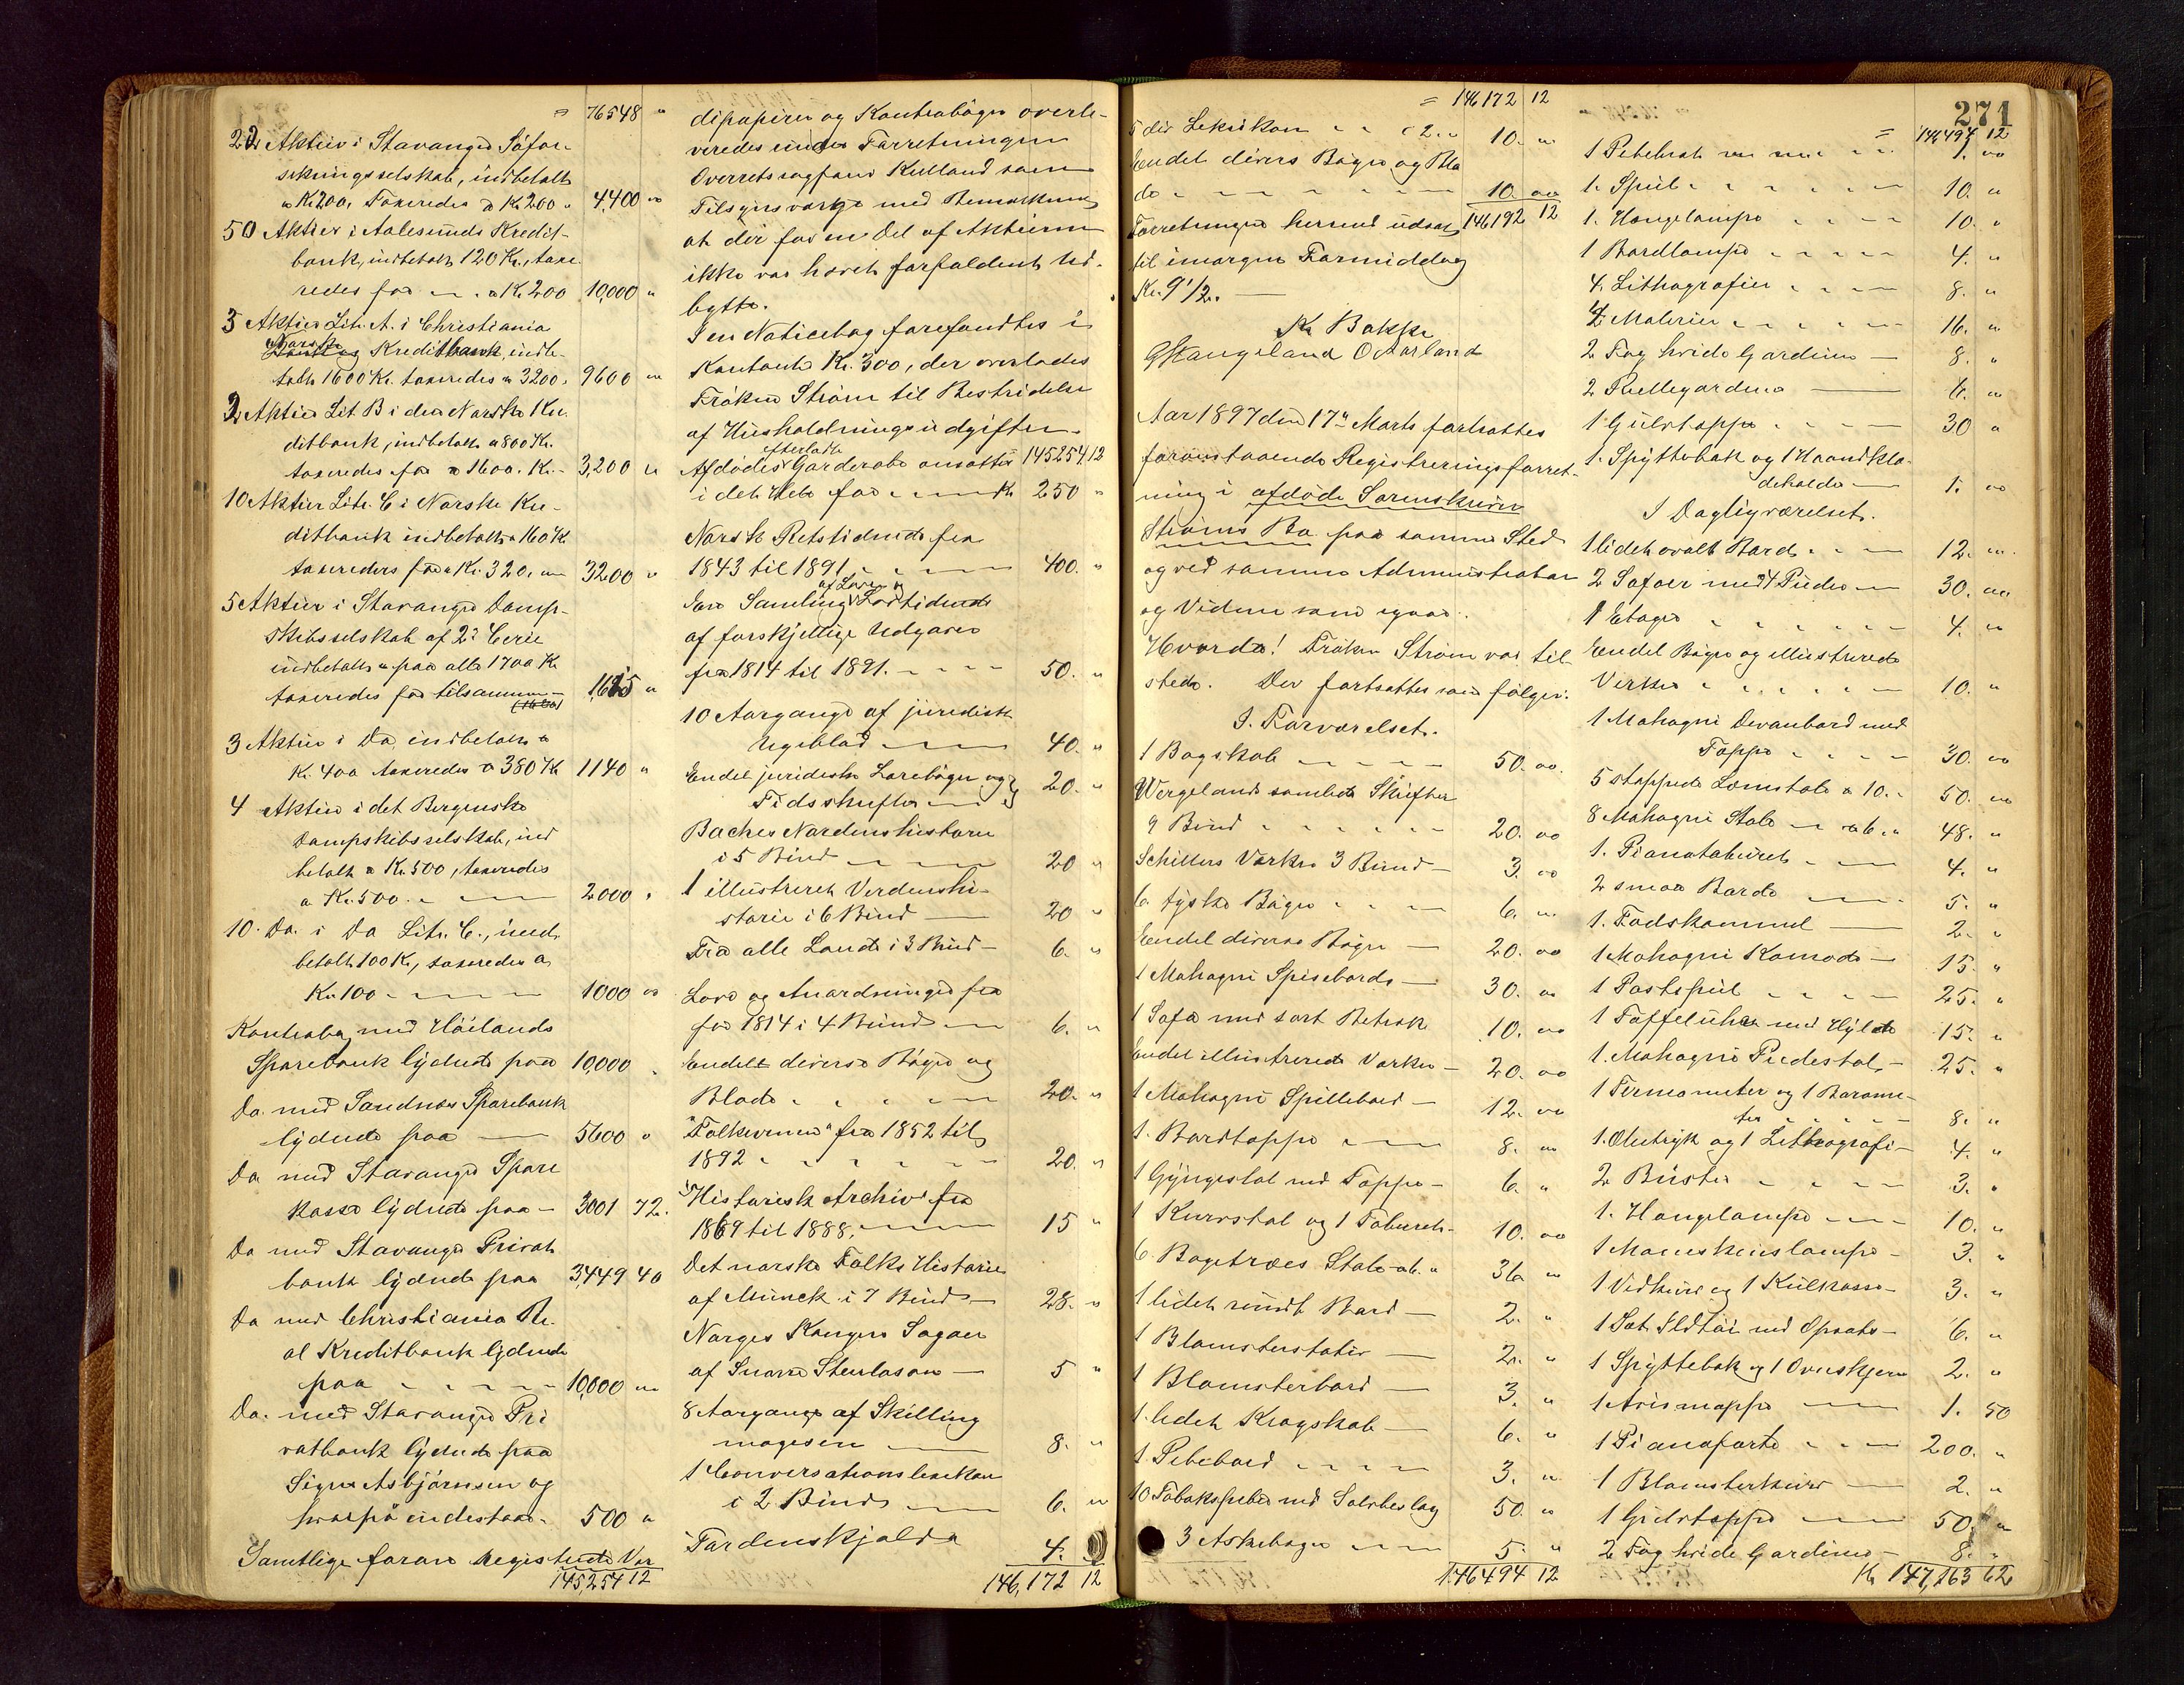 = 76548 "
22 Aktier i Stavanger Söfor-
sikringsselskab, indbetalt
a Kr 200, Taxeredes a Kr 200 " 4,400 "
50 Aktier i Aalesunds Kredit-
bank, indbetalt 120 Kr., taxe-
redes for a Kr. 200 10,000 "
3 Aktier Litr. A. i Christiania
Norske Kreditbank, indbe-
talt 1600 Kr. taxeredes a 3200, 9600 "
2 Aktier Lit. B i den Norske Kre-
ditbank, indbetalt a 800 Kr.
taxeredes for a 1600. Kr. - 3,200 "
10 Aktier Litr. C i Norske Kre-
ditbank indbetalt a 160 Kr
taxereders for a Kr. 320. 3200 "
5 Aktier i Stavanger Damp-
skibsselskab af 2den Serie
indbetalt paa alle 1700 Kr
taxeredes for tilsammen - 1,615 "
3 Aktier i Do, indbetalt a
Kr. 400 taxeredes a 380 Kr 1140 "
4 Aktier i det Bergenske
Dampskibsselskab, ind
betalt a Kr. 500, taxeredes
a Kr. 500. 2000 "
10. Do. i Do Litr. C., ind
betalt 100 Kr, taxeredes a
Kr. 100 - 1000 "
Kontrabog med Höilands
Sparebank lydende paa 10,000 "
Do. med Sandnæs Sparebank
lydende paa 5600 "
Do. med Stavanger Spare
kasse lydende paa - 3001 72.
Do med Stavanger Privat
bank lydende paa 3,449 40
Do med Christiania Re-
al Kreditbank lydende
paa 10,000 "
Do. med Stavanger Pri
vatbank lydende paa
Signe Asbjörnsen og
hvorpå indestaar - 500 "
Samtlige foran registrerede Vær
145,254 12
dipapirer og Kontrabøger overle-
veredes under Forretningen
Overretssagfører Kielland som
Tilsynsværge med Bemærkning
at der for en Del af Aktierne
ikke var hævet forfaldent Ud-
bytte.
I en Noticebog forefandtes i
Kontant Kr. 300, der overlodes
Fröken Ström til Bestridelse
af Husholdningsudgifter.
efterladte
Afdödes Garderobe ansattes 145254.12
i det Hele for Kr 250 "
Norsk Retstidende fra
1843 til 1891 400. "
af Love og
En Samling Lovtidende
af forskjellige Udgaver
fra 1814 til 1891. 50. "
10 Aargange af juridisk
Ugeblad 40. "
Endel juridiske Lærebøger og
Tidsskrifter 20. "
Baches Nordenshistorie
i 5 Bind 20 "
1 illustreret Verdenshi-
storie i 6 Bind 20 "
Fra alle Lande i 3 Bind - 6. "
Love og Anordninger fra
før 1814 i 4 Bind 6. "
Endel diverse Bøger og
Blade 20. "
"Folkevennen" fra 1852 til
1892 20. "
"Historisk Archiv" fra
1869 til 1888. 15 "
Det norske Folks Historie
af Munck i 7 Bind - 28. "
Norges Kongers Sagaer
af Snorre Sturlason - 5 "
8 Aargange af Skilling
magesin 8. "
1 Conversationslexikon
i 2 Bind 6. "
Tordenskjold 4.
146,172 12
= 146172 12
5 div Leksikon a 2. 10. "
Endel divers Bøger og Bla
de 10. oo
146192 12
Forretningen herved udsat
til imorgen Formiddag
Kl. 9 1/2. -
K. Bakke
G Stangeland O Aarland
Aar 1897 den 17de Marts fortsattes
foranstaaende Registreringsforret-
ning i afdöde Sorenskriver
Ströms Bo paa samme Sted
og ved samme Administrator
og Vidner som igaar.
Hvorda! Fröken Ström var til-
stede. Der fortsattes som følger:
I. Forværelset.
1 Bogskab 50. oo.
Wergelands samlede Skrifter
9 Bind 20. oo
Schillers Værker 3 Bind - 3. oo
6 tyske Bøger 6. "
Endel diverse Bøger - 20. oo
1 Mahogni Spisebord - 30. oo
1 Sofa med sort Betræk 10. oo
Endel illustrerede Værker - 20. oo
1 Mahogni Spillebord - 12. oo
1. Bordtæppe 8. oo
1 Gyngestol med Tæppe - 6. "
1 Kurvstol og 1 Taburet - 10. oo
6. Bøgetræes Stole a 6. " 36 "
1 lidet rundt Bord - 2. "
1 Blomsterstativ - 2. "
1 Blomsterbord - 3. "
1. lidet Krogskab - 6. "
1. Pibebord 3. "
10 Tobakspiber med Sølvbeslag 50. "
3 Askebæger 5. "
146494 12
271
= 146,494 12
1 Pibebræt 1. oo
1. Speil 10. "
1. Hængelampe 10. "
1 Bordlampe 4. "
4. Lithografier 8. "
4 Malerier 16. "
2 Fag hvide Gardiner - 8. "
2 Rullegardiner 6. "
1 Gulvtæppe 30 "
1. Spyttebak og 1 Haandklæ-
deholder 1. oo
I Dagligværelset.
1 lidet ovalt Bord 12. "
2 Sofaer med 4 Puder 30. oo
1 Etager 4. "
Endel Bøger og illustrerede
Verker 10. "
1 Mahogni Devanbord med
Tæppe 30. oo
5 stoppede Lænestole a 10. 50. oo
8 Mahogni Stole a 6. " 48. "
1. Pianotaburet 4. "
2 smaa Borde 5. "
1. Fodskammel 2. "
1 Mahogni Komode - 15. "
1 Postspeil 25. "
1 Taffeluhr med Hylde 15. "
1. Mahogni Piedestal - 25. "
1 Termometer og 1 Barome-
ter 8. "
1. Olietryk og 1 Lithografi - 4. "
2 Büster 3. "
1. Hængelampe 10. "
1 Maaneskinslampe - 3. "
1 Vedkurv og 1 Kulkasse - 3. "
1 Sæt Ildtöi med Opsats - 6. "
1 Spyttebak og 1 Ovnskjerm 2. "
1 Avismappe 1. 50
1 Pianoforte 200. "
1 Blomsterkurv 2. "
1 Gulvtæppe 50. "
2 Fag hvide Gardiner - 8. "
Kr 147,163 62